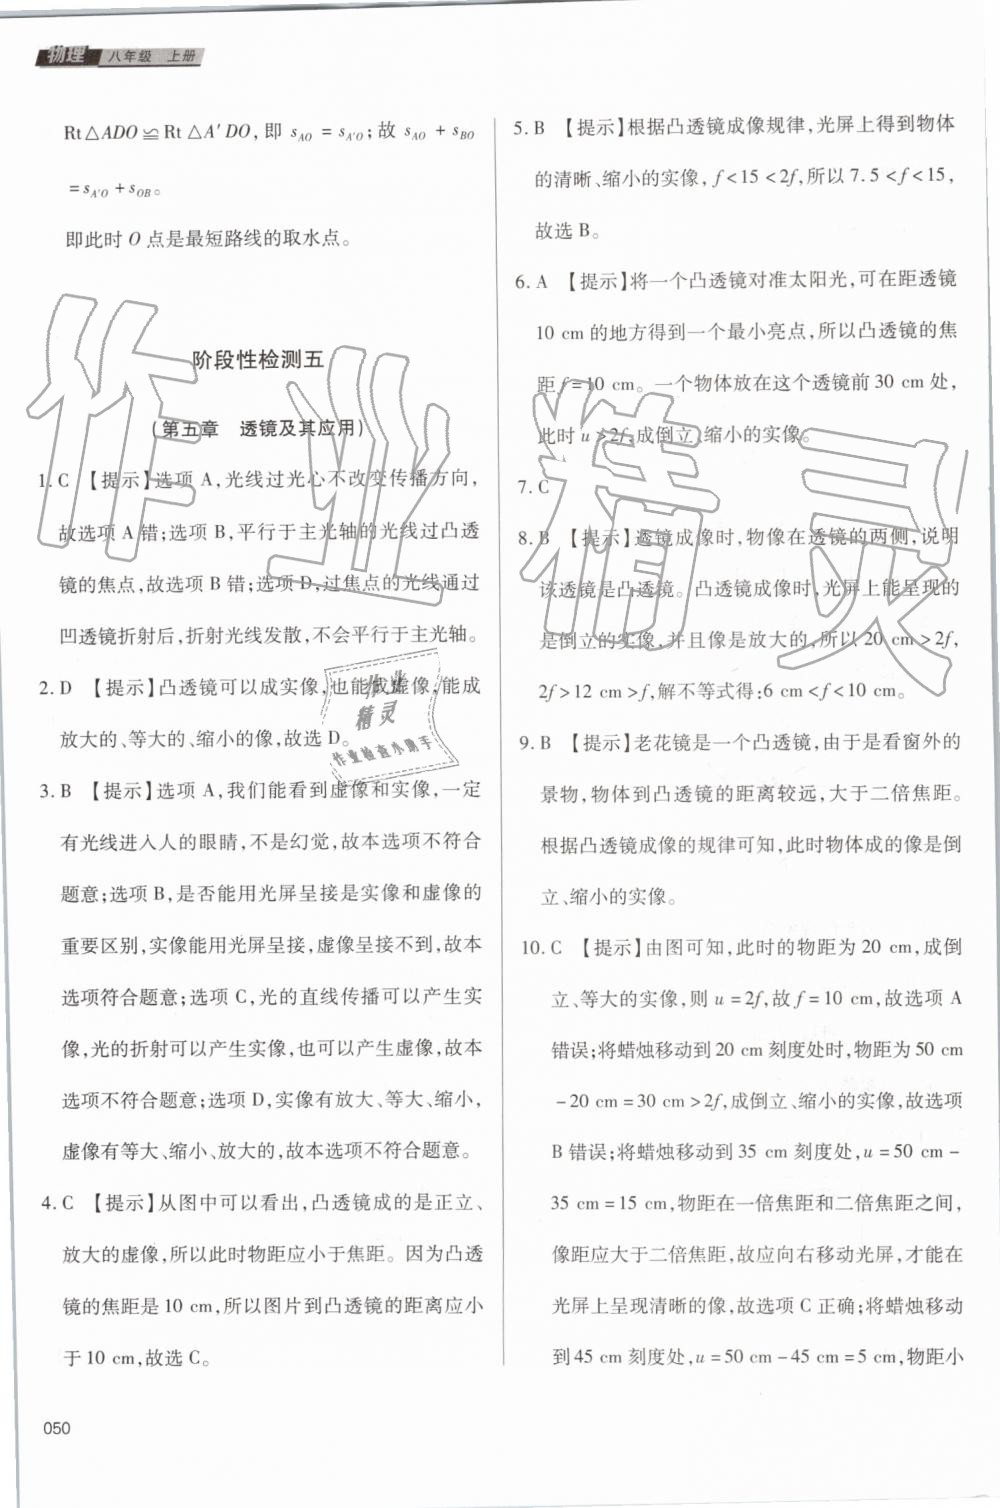 物理 八年级 上册
Rt△ADO≌Rt△A′DO,即 s_AO = s_A′O;故 s_AO + s_BO
= s_A′O + s_OB。
即此时 O 点是最短路线的取水点。
阶段性检测五
(第五章 透镜及其应用)
1. C 【提示】选项 A,光线过光心不改变传播方向,
故选项 A 错;选项 B,平行于主光轴的光线过凸透
镜的焦点,故选项 B 错;选项 D,过焦点的光线通过
凹透镜折射后,折射光线发散,不会平行于主光轴。
2. D 【提示】凸透镜可以成实像,也能成虚像,能成
放大的、等大的、缩小的像,故选 D。
3. B 【提示】选项 A,我们能看到虚像和实像,一定
有光线进入人的眼睛,不是幻觉,故本选项不符合
题意;选项 B,是否能用光屏呈接是实像和虚像的
重要区别,实像能用光屏呈接,虚像呈接不到,故本
选项符合题意;选项 C,光的直线传播可以产生实
像,光的折射可以产生实像,也可以产生虚像,故本
选项不符合题意;选项 D,实像有放大、等大、缩小,
虚像有等大、缩小、放大的,故本选项不符合题意。
4. C 【提示】从图中可以看出,凸透镜成的是正立、
放大的虚像,所以此时物距应小于焦距。因为凸透
镜的焦距是 10 cm,所以图片到凸透镜的距离应小
于 10 cm,故选 C。
5. B 【提示】根据凸透镜成像规律,光屏上得到物体
的清晰、缩小的实像,f<15<2f,所以 7.5<f<15,
故选 B。
6. A 【提示】将一个凸透镜对准太阳光,可在距透镜
10 cm 的地方得到一个最小亮点,所以凸透镜的焦
距 f=10 cm。一个物体放在这个透镜前 30 cm 处,
此时 u>2f,成倒立、缩小的实像。
7. C
8. B 【提示】透镜成像时,物像在透镜的两侧,说明
该透镜是凸透镜。凸透镜成像时,光屏上能呈现的
是倒立的实像,并且像是放大的,所以 20 cm>2f,
2f>12 cm>f,解不等式得:6 cm<f<10 cm。
9. B 【提示】老花镜是一个凸透镜,由于是看窗外的
景物,物体到凸透镜的距离较远,大于二倍焦距。
根据凸透镜成像的规律可知,此时物体成的像是倒
立、缩小的实像。
10. C 【提示】由图可知,此时的物距为 20 cm,成倒
立、等大的实像,则 u=2f,故 f=10 cm,故选项 A
错误;将蜡烛移动到 20 cm 刻度处时,物距为 50 cm
-20 cm=30 cm>2f,成倒立、缩小的实像,故选项
B 错误;将蜡烛移动到 35 cm 刻度处,u=50 cm-
35 cm=15 cm,物距在一倍焦距和二倍焦距之间,
像距应大于二倍焦距,故应向右移动光屏,才能在
光屏上呈现清晰的像,故选项 C 正确;将蜡烛移动
到 45 cm 刻度处,u=50 cm-45 cm=5 cm,物距小
作业精灵
作业
精灵
作业检查小助手
050